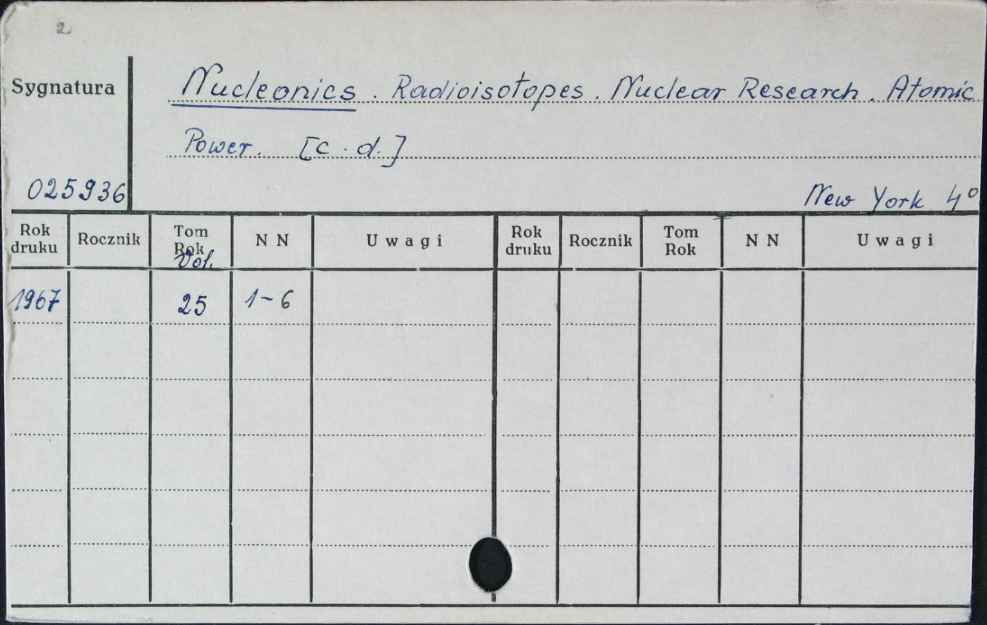 2
Sygnatura
Nucleonics . Radioisotopes . Nuclear Research . Atomic
Power . [c . d.]
025936
New York 4°
Rok druku Rocznik Tom Rok Vol. N N Uwagi Rok druku Rocznik Tom Rok N N Uwagi
1967 25 1-6